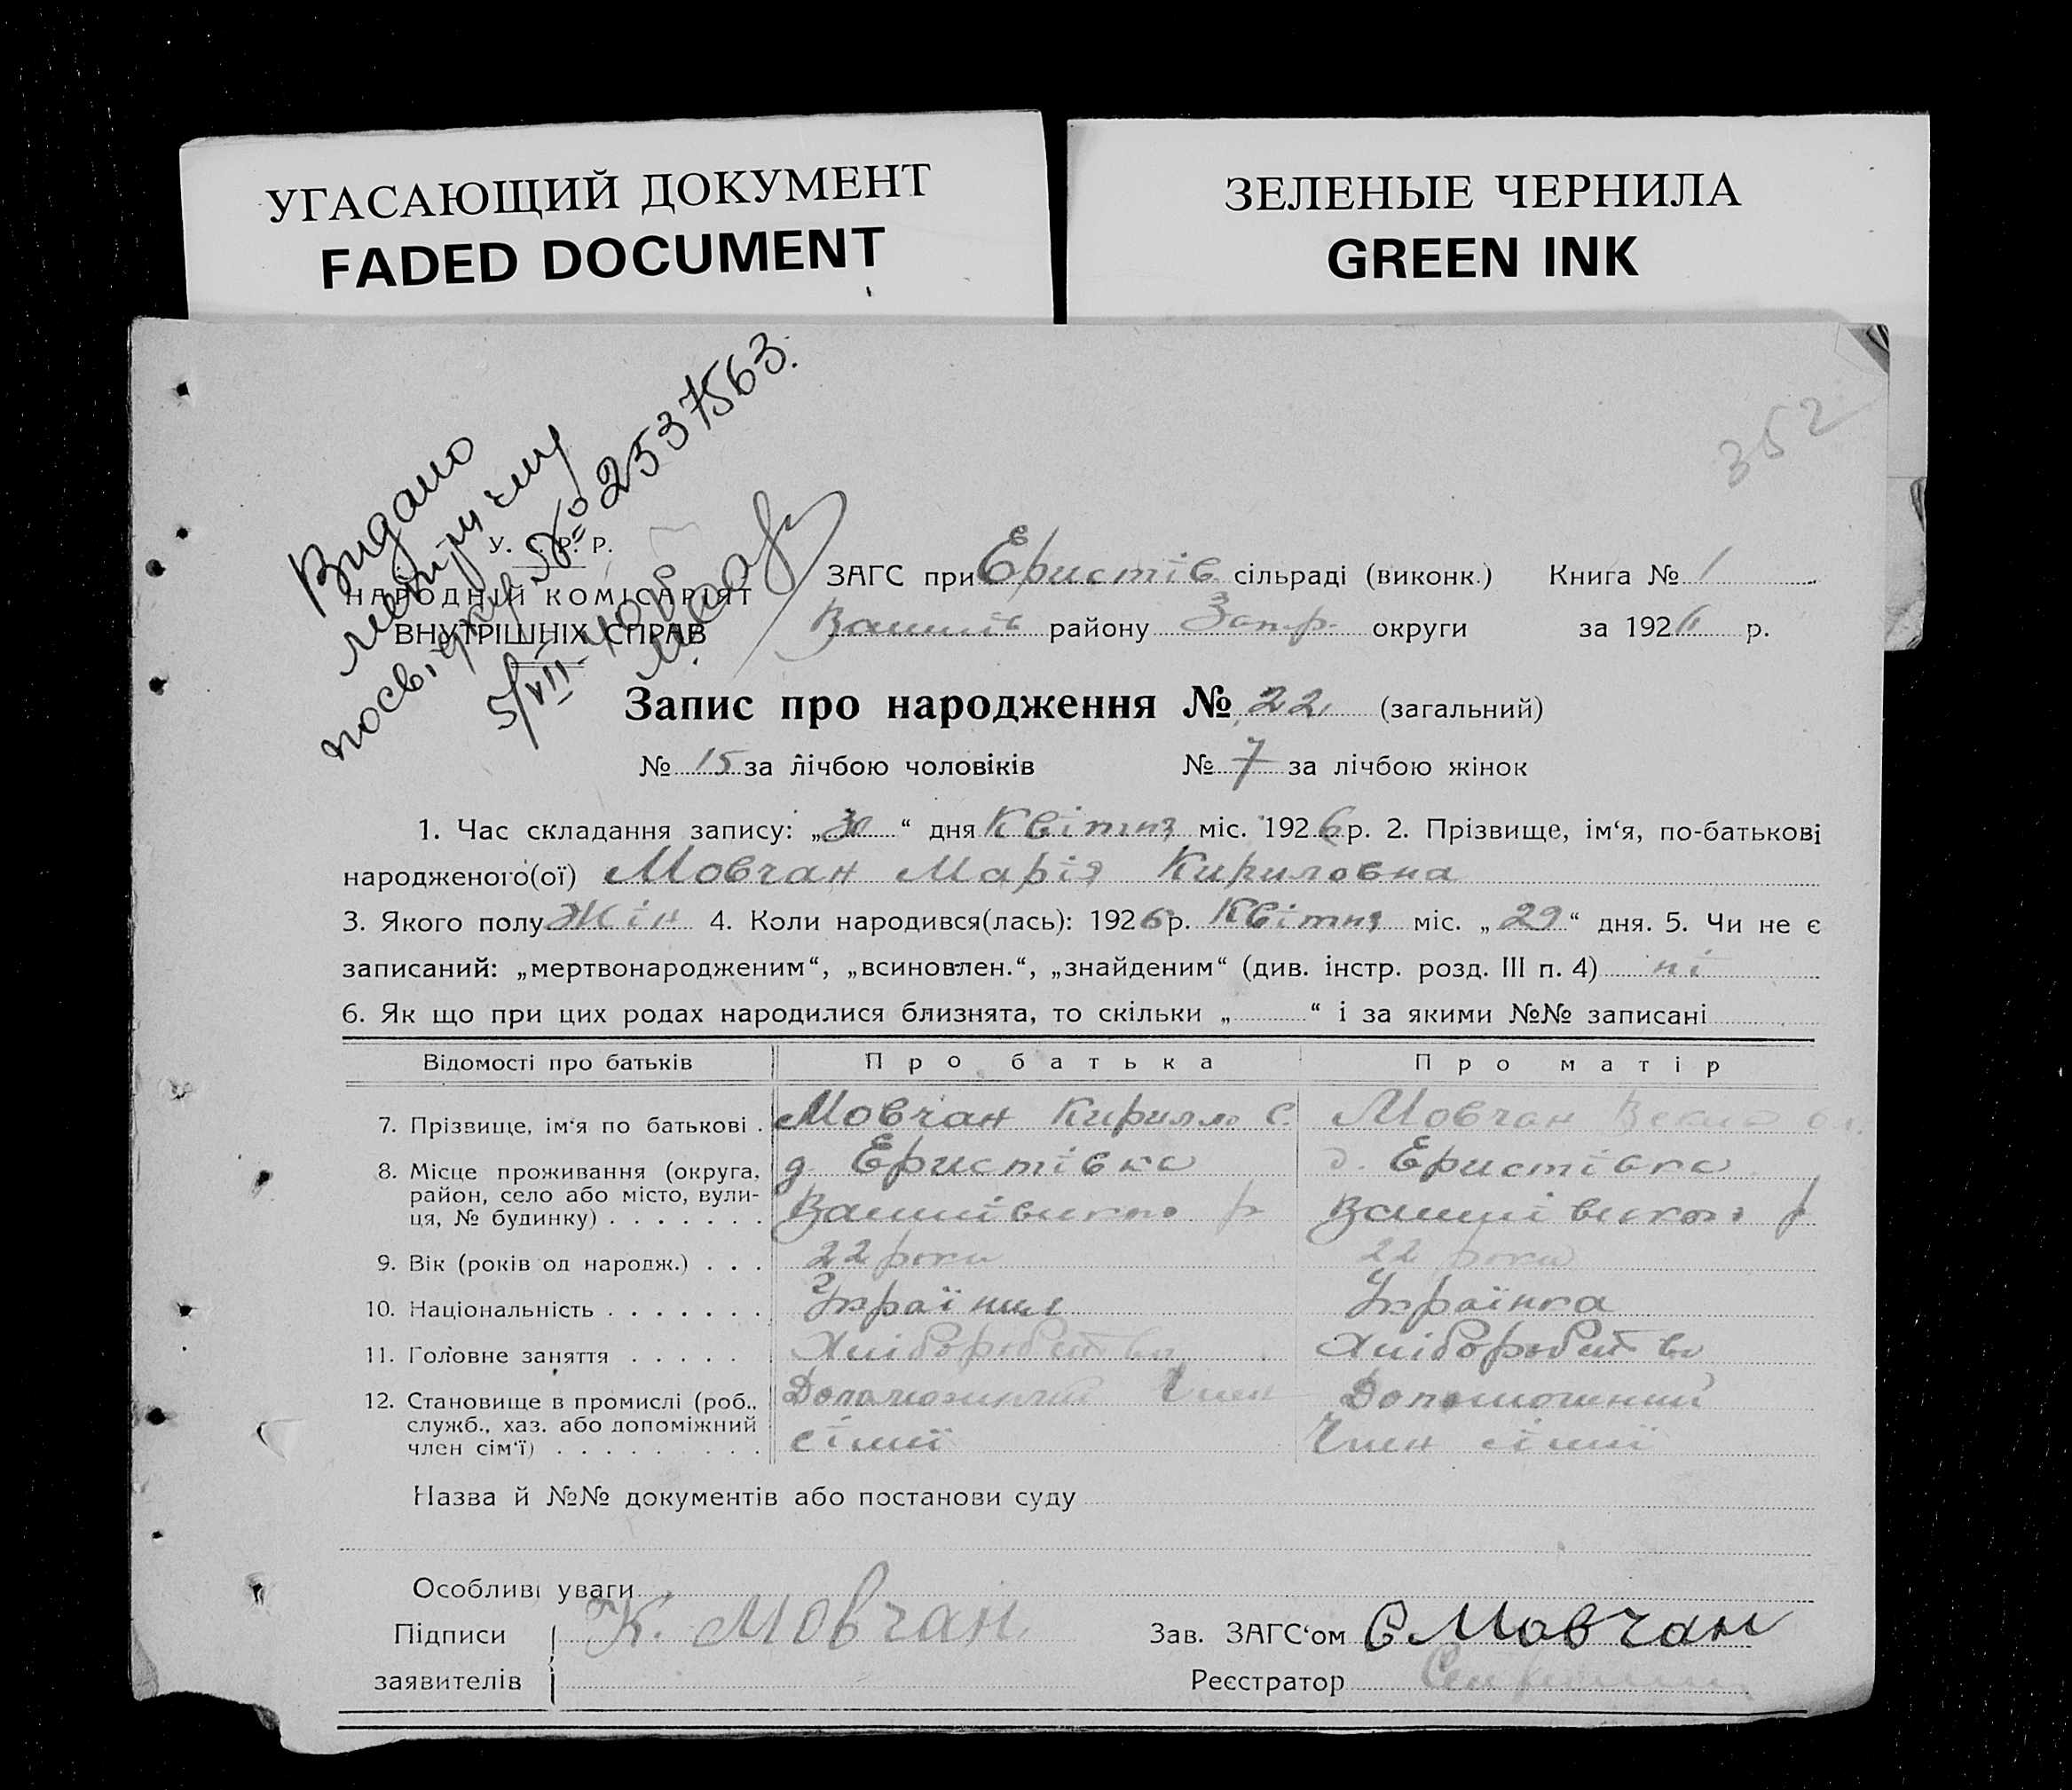 УГАСАЮЩИЙ ДОКУМЕНТ
FADED DOCUMENT
ЗЕЛЕНЫЕ ЧЕРНИЛА
GREEN INK
352
Видано
посвідку № 2537563.
5/VII-40 р
У. С. Р. Р.
НАРОДНІЙ КОМІСАРІЯТ
ВНУТРІШНІХ СПРАВ
ЗАГС при Еристів сільраді (виконк.) Книга № 1
району Запр. округи за 1926 р.
Запис про народження № 22 (загальний)
№ 15 за лічбою чоловіків № 7 за лічбою жінок
1. Час складання запису: „30“ дня Квітня міс. 1926 р. 2. Прізвище, ім‘я, по-батькові
народженого(ої) Мовчан Марія Кириловна
3. Якого полу Жін 4. Коли народився(лась): 1926 р. Квітня міс. „29“ дня. 5. Чи не є
записаний: „мертвонародженим“, „всиновлен.“, „знайденим“ (див. інстр. розд. III п. 4) ні
6. Як що при цих родах народилися близнята, то скільки „ “ і за якими №№ записані
Відомості про батьків Про батька Про матір
7. Прізвище, ім‘я по батькові . Мовчан Кирилло С. Мовчан
8. Місце проживання (округа, д. Еристівка д. Еристівка
район, село або місто, вули-
ця, № будинку) . . . . . . .
9. Вік (років од народж.) . . . 22 роки 22 роки
10. Національність . . . . . . . Українец Українка
11. Головне заняття . . . . . Хліборобство Хліборобство
12. Становище в промислі (роб., Допоможний Член Допоможний
служб., хаз. або допоміжний
член сім‘ї) . . . . . . . . . сімії Член сімії
Назва й №№ документів або постанови суду
Особливі уваги
Підписи К. Мовчан. Зав. ЗАГС‘ом С Мовчан
заявителів Реєстратор